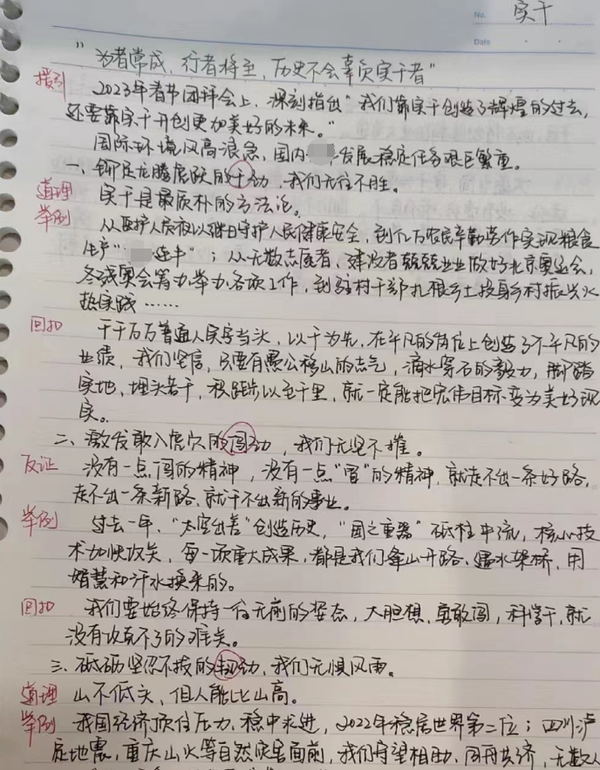 No. 实干
Date
"为者常成，行者将至，历史不会辜负实干者"
摆引 2023年春节团拜会上，深刻指出"我们靠实干创造了辉煌的过去，
还要靠实干开创更加美好的未来。"
国际环境风高浪急，国内 发展稳定任务艰巨繁重。
一、铆足龙腾虎跃的干劲，我们无往不胜。
道理 实干是最质朴的方法论。
举例 从医护人员夜以继日守护人民健康安全，到亿万农民辛勤劳作实现粮食
生产" 连丰"；从无数志愿者、建设者兢兢业业做好北京奥运会、
冬残奥会筹办举办各项工作，到驻村干部扎根乡土投身乡村振兴火
热实践……
回扣 千千万万普通人实字当头，以干为先，在平凡的岗位上创造了不平凡的
业绩，我们坚信，只要有愚公移山的志气，滴水穿石的毅力，脚踏
实地，埋头苦干，积跬步以至千里，就一定能把宏伟目标变为美好现
实。
二、激发敢入虎穴的闯劲，我们无坚不摧。
反证 没有一点闯的精神，没有一点"冒"的精神，就走不出一条好路，
走不出一条新路，就干不出新的事业。
举例 过去一年，"太空出差"创造历史，"国之重器"砥柱中流，核心技
术加快攻关，每一项重大成果，都是我们逢山开路、遇水架桥，用
智慧和汗水换来的。
回扣 我们要始终保持一往无前的姿态，大胆想，勇敢闯，科学干，就
没有攻克不了的难关。
三、砥砺坚忍不拔的韧劲，我们无惧风雨。
道理 山不低头，但人能比山高。
举例 我国经济顶住压力，稳中求进，2022年稳居世界第二位；四川泸
定地震，重庆山火等自然灾害面前，我们守望相助，同舟共济，无数人